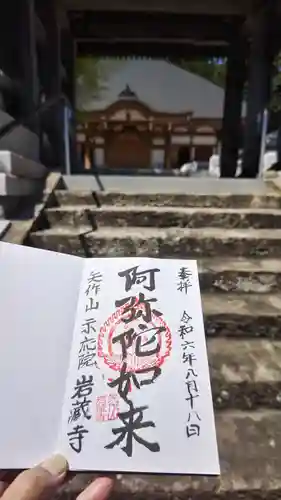 奉拝
令和六年八月十八日
阿弥陀如来
矢作山 示応院
岩蔵寺